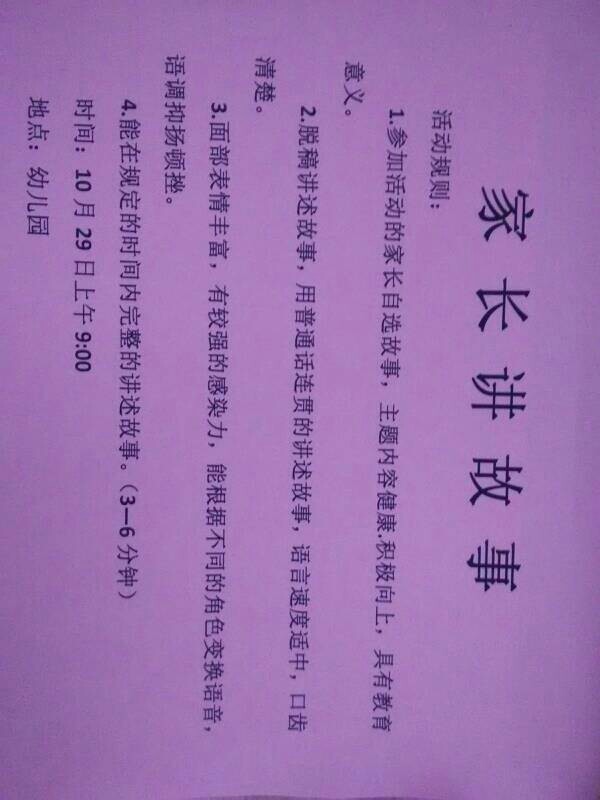 家长讲故事
活动规则：
1.参加活动的家长自选故事，主题内容健康.积极向上，具有教育
意义。
2.脱稿讲述故事，用普通话连贯的讲述故事，语言速度适中，口齿
清楚。
3.面部表情丰富，有较强的感染力，能根据不同的角色变换语音，
语调抑扬顿挫。
4.能在规定的时间内完整的讲述故事。（3—6 分钟）
时间：10 月 29 日上午 9:00
地点：幼儿园